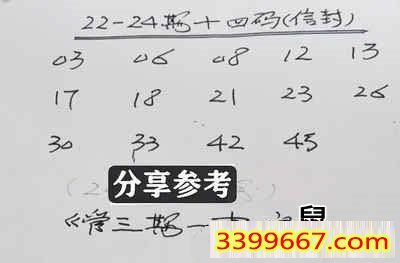 22-24期十四码(信封)
03 06 08 12 13
17 18 21 23 26
30 33 42 45
分享参考
《管三期一 鼠
3399667.com